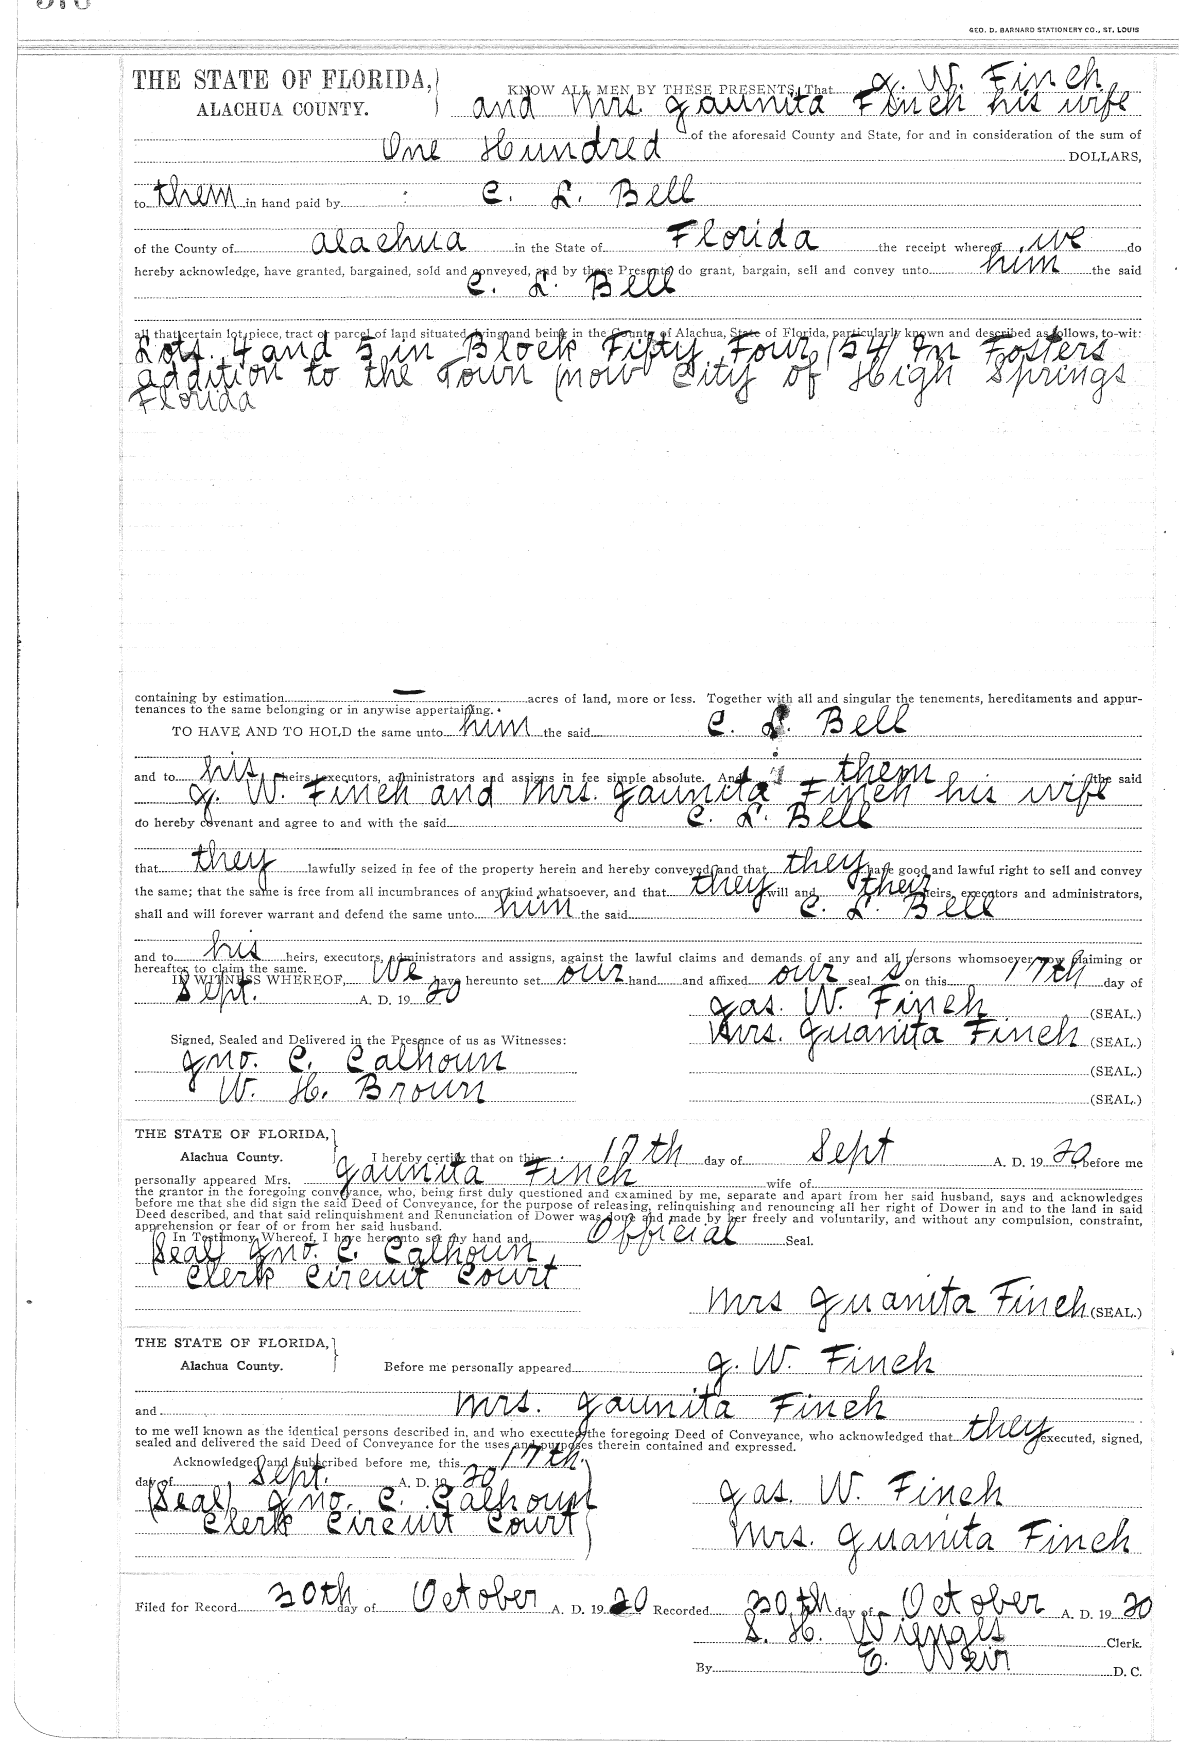 GEO. D. BARNARD STATIONERY CO., ST. LOUIS
THE STATE OF FLORIDA,
ALACHUA COUNTY.
KNOW ALL MEN BY THESE PRESENTS, That J. W. Finch
and Mrs Jaunita Finch his wife
of the aforesaid County and State, for and in consideration of the sum of
One Hundred DOLLARS,
to them in hand paid by C. L. Bell
of the County of Alachua in the State of Florida the receipt whereof we do
hereby acknowledge, have granted, bargained, sold and conveyed, and by these Presents do grant, bargain, sell and convey unto him the said
C. L. Bell
all that certain lot, piece, tract or parcel of land situated, lying and being in the County of Alachua, State of Florida, particularly known and described as follows, to-wit:
Lots. 4 and 5 in Block Fifty Four (54) In Fosters
addition to the Town (now City of High Springs
Florida
containing by estimation — acres of land, more or less. Together with all and singular the tenements, hereditaments and appur-
tenances to the same belonging or in anywise appertaining.
TO HAVE AND TO HOLD the same unto him the said C. L. Bell
and to his heirs, executors, administrators and assigns in fee simple absolute. And them the said
J. W. Finch and Mrs. Jaunita Finch his wife
do hereby covenant and agree to and with the said C. L. Bell
that they lawfully seized in fee of the property herein and hereby conveyed and that they have good and lawful right to sell and convey
the same; that the same is free from all incumbrances of any kind whatsoever, and that they will and their heirs, executors and administrators,
shall and will forever warrant and defend the same unto him the said C. L. Bell
and to his heirs, executors, administrators and assigns, against the lawful claims and demands of any and all persons whomsoever now claiming or
hereafter to claim the same.
IN WITNESS WHEREOF, We have hereunto set our hand and affixed our seal s on this 17th day of
Sept. A. D. 1920
Jas. W. Finch (SEAL.)
Mrs. Juanita Finch (SEAL.)
Signed, Sealed and Delivered in the Presence of us as Witnesses:
Jno. C. Calhoun (SEAL.)
W. H. Brown (SEAL.)
THE STATE OF FLORIDA,
Alachua County.
I hereby certify that on this 17th day of Sept A. D. 1920 before me
personally appeared Mrs. Jaunita Finch wife of
the grantor in the foregoing conveyance, who, being first duly questioned and examined by me, separate and apart from her said husband, says and acknowledges
before me that she did sign the said Deed of Conveyance, for the purpose of releasing, relinquishing and renouncing all her right of Dower in and to the land in said
Deed described, and that said relinquishment and Renunciation of Dower was done and made by her freely and voluntarily, and without any compulsion, constraint,
apprehension or fear of or from her said husband.
In Testimony Whereof, I have hereunto set my hand and Official Seal.
(Seal) Jno. C. Calhoun
Clerk Circuit Court
Mrs Juanita Finch (SEAL.)
THE STATE OF FLORIDA,
Alachua County.
Before me personally appeared J. W. Finch
and Mrs. Jaunita Finch
to me well known as the identical persons described in, and who executed the foregoing Deed of Conveyance, who acknowledged that they executed, signed,
sealed and delivered the said Deed of Conveyance for the uses and purposes therein contained and expressed.
Acknowledged and subscribed before me, this 17th.
day of Sept. A. D. 1920
(Seal) Jno. C. Calhoun
Clerk Circuit Court
Jas. W. Finch
Mrs. Juanita Finch
Filed for Record 20th day of October A. D. 1920 Recorded 20th day of October A. D. 1920
S. H. Wienges Clerk.
By E. Weir D. C.